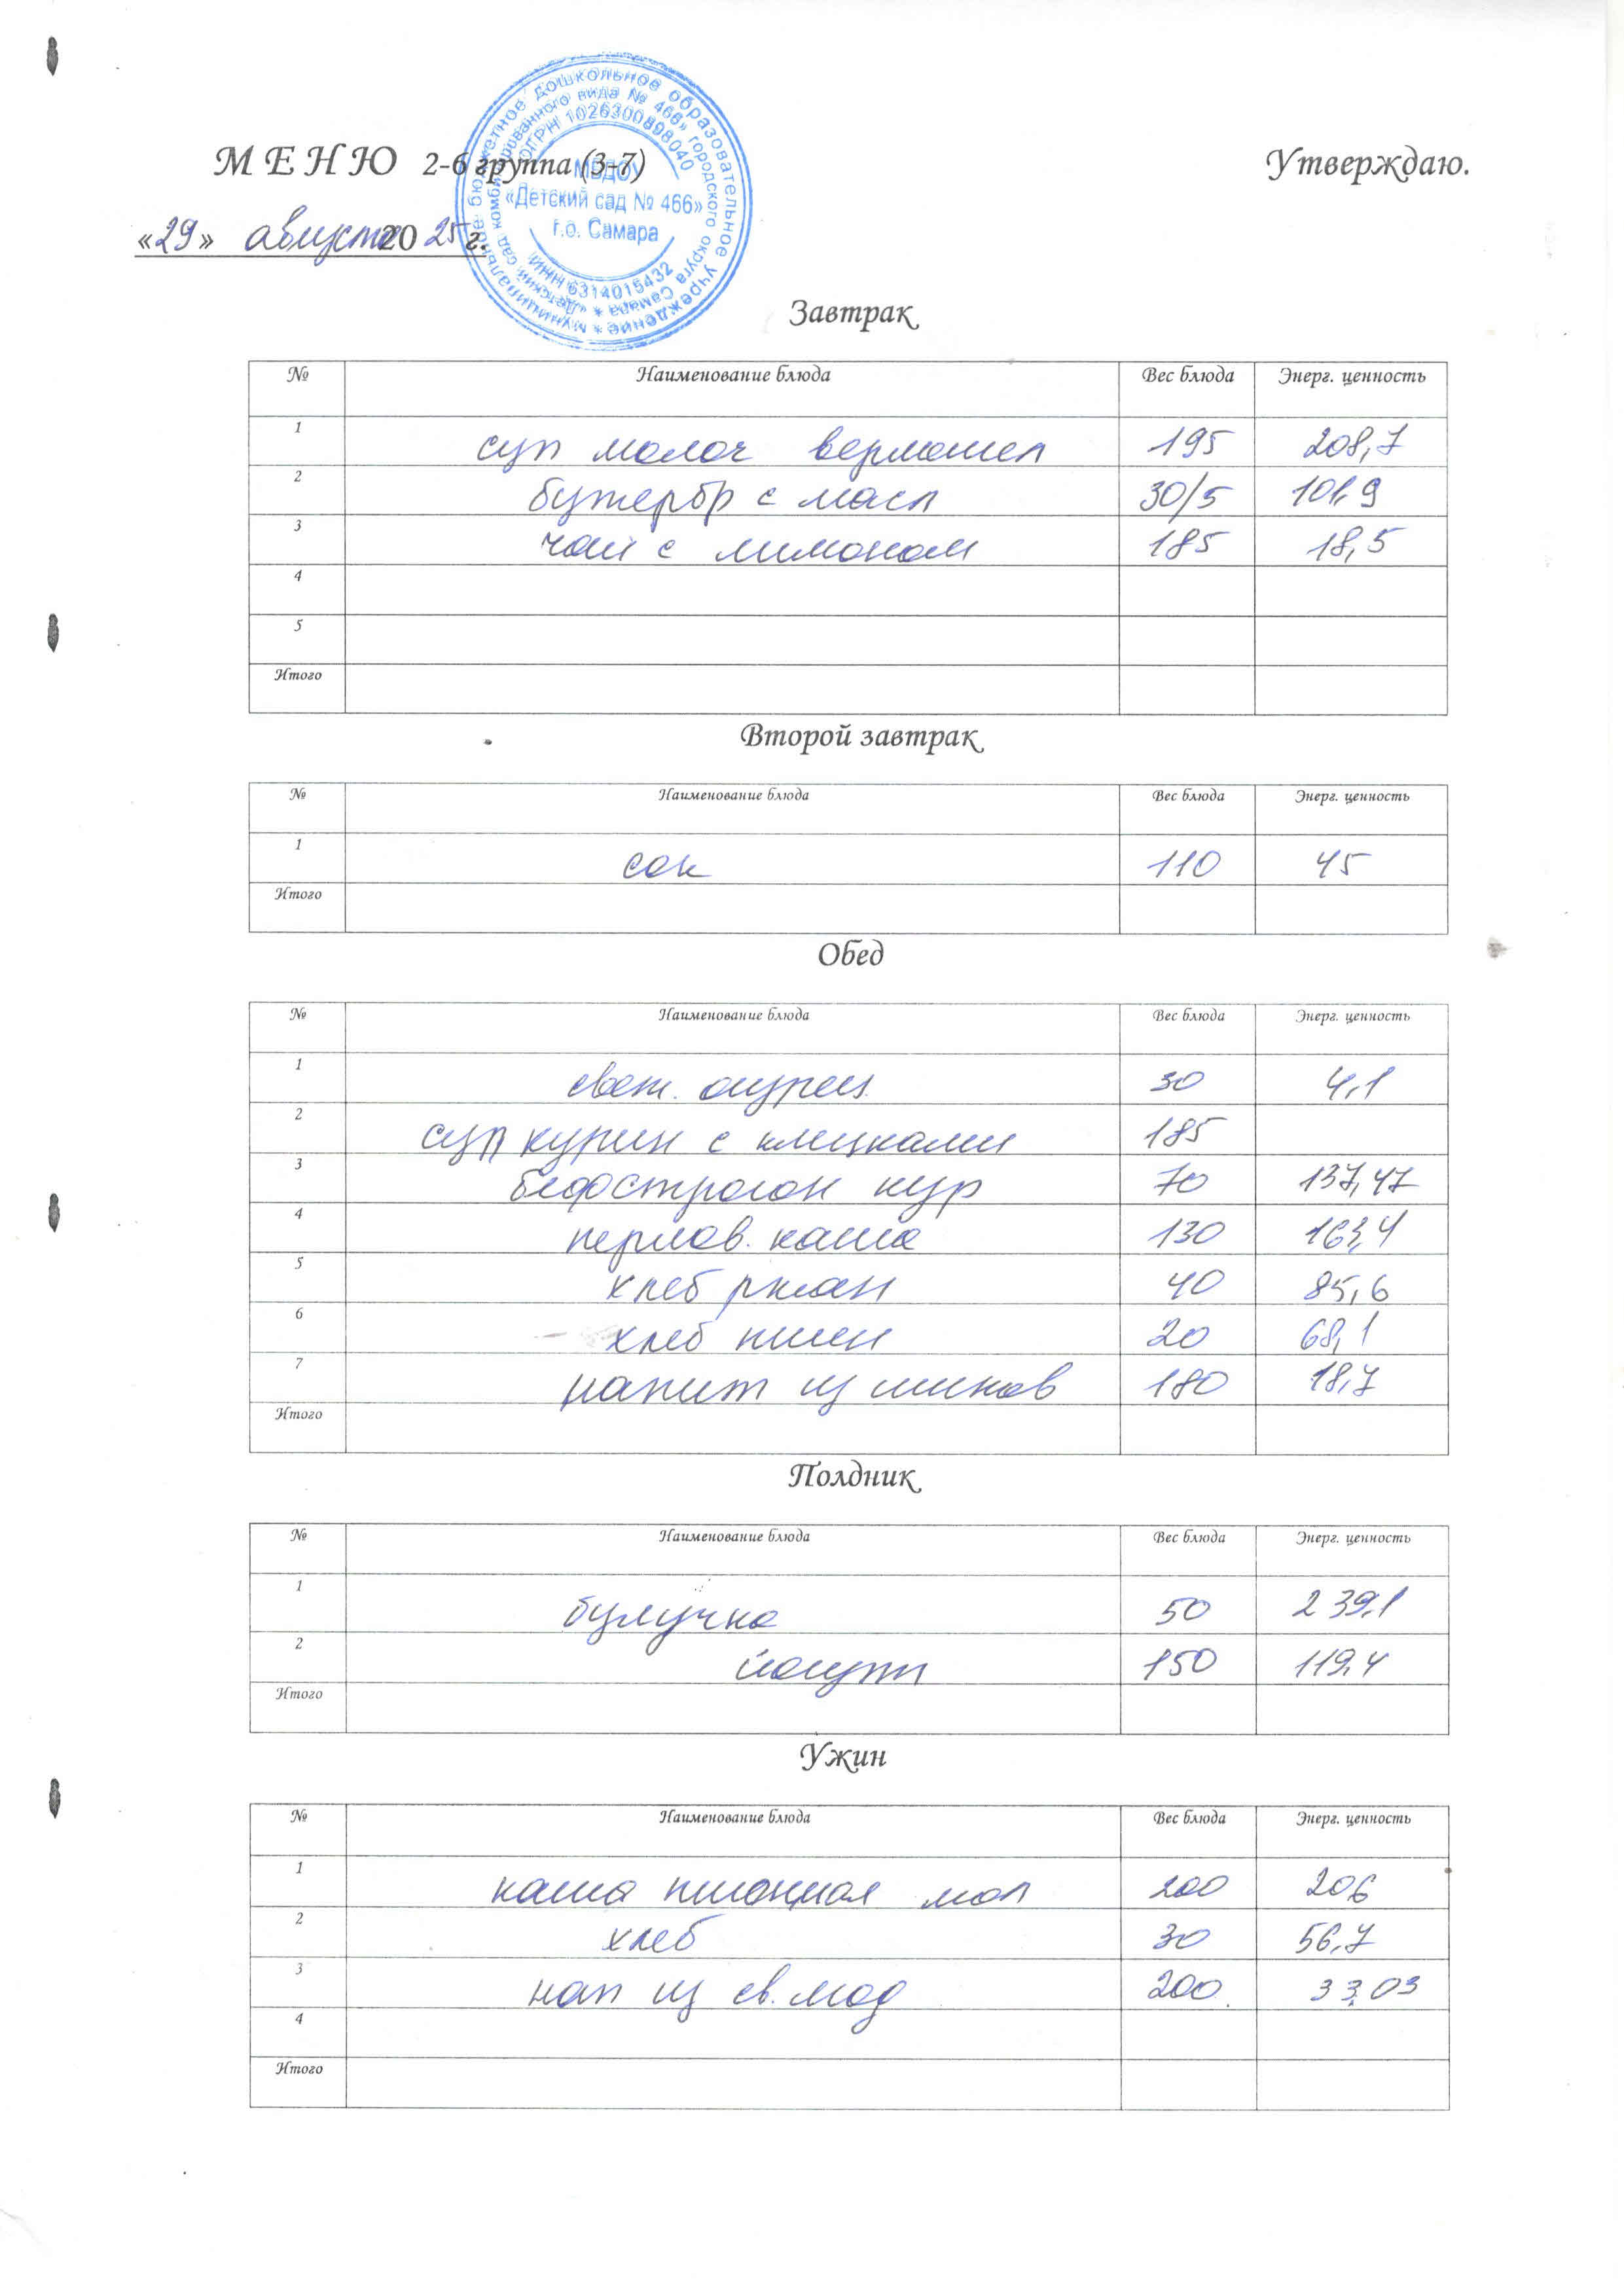 М Е Н Ю 2-6 группа (3-7)
Утверждаю.
«29» августа 2025 г.
муниципальное бюджетное дошкольное образовательное учреждение *
«Детский сад комбинированного вида № 466» городского округа Самара *
ОГРН 1026300898040
МБДОУ
«Детский сад № 466»
г.о. Самара
ИНН 6314015432
Завтрак
№ Наименование блюда Вес блюда Энерг. ценность
1 суп молоч вермишел 195 208,7
2 бутербр с масл 30/5 101,9
3 чай с лимоном 185 18,5
4
5
Итого
Второй завтрак
№ Наименование блюда Вес блюда Энерг. ценность
1 сок 110 45
Итого
Обед
№ Наименование блюда Вес блюда Энерг. ценность
1 свеж. огурец 30 4,1
2 суп курин с клецками 185
3 бефстрогон кур 70 137,47
4 перлов. каша 130 163,4
5 хлеб ржан 40 85,6
6 хлеб пшен 20 68,1
7 напит из шипов 180 18,7
Итого
Полдник
№ Наименование блюда Вес блюда Энерг. ценность
1 булучка 50 239,1
2 йогурт 150 119,4
Итого
Ужин
№ Наименование блюда Вес блюда Энерг. ценность
1 каша пшонная мол 200 206
2 хлеб 30 56,7
3 нап из св. яод 200 33,03
4
Итого